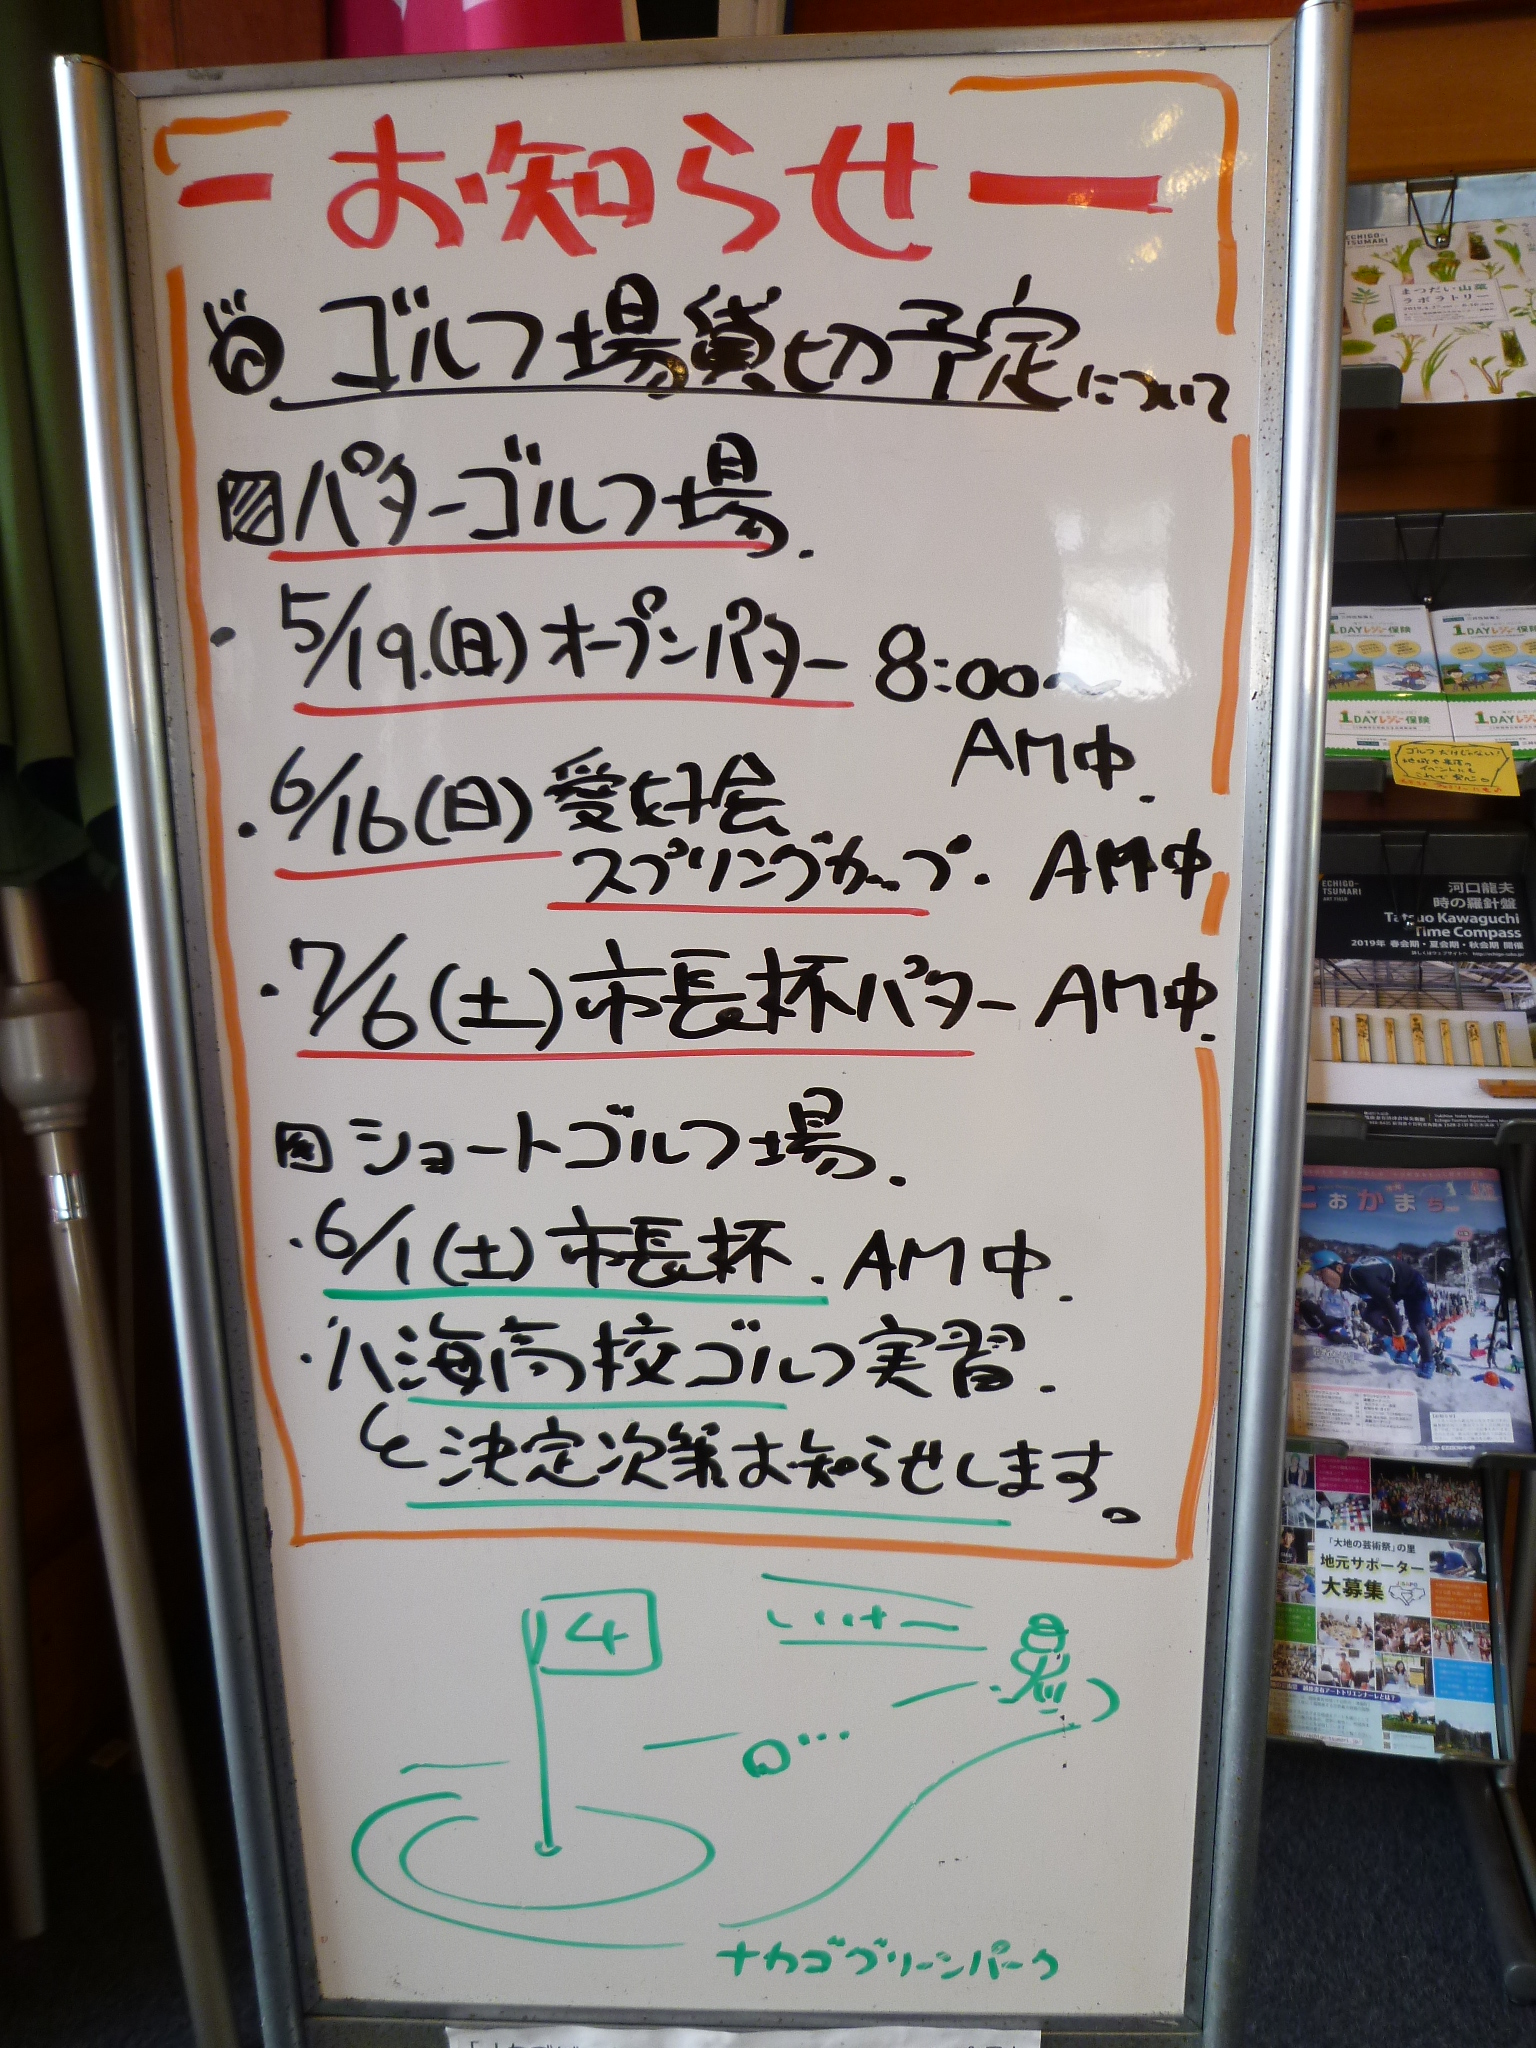 ー お知らせ ー
ゴルフ場貸切予定について
パターゴルフ場.
・5/19.(日)オープンパター 8:00〜
AM中.
・6/16(日)愛好会
スプリングカップ. AM中
・7/6(土)市長杯パター AM中.
ショートゴルフ場.
・6/1(土)市長杯. AM中.
・八海高校ゴルフ実習.
と決定次第お知らせします。
4
ナカゴグリーンパーク
ECHIGO-
TSUMARI
まつだい山菜
ラボラトリー
1DAYレジャー保険
1DAYレジャー保険
1DAYレジャー保険
1DAYレジャー保険
ゴルフだけじゃない!
ECHIGO-
TSUMARI
ART FIELD
河口龍夫
時の羅針盤
Tatsuo Kawaguchi
Time Compass
2019年 春会期・夏会期・秋会期 開催
「大地の芸術祭」の里
地元サポーター
大募集